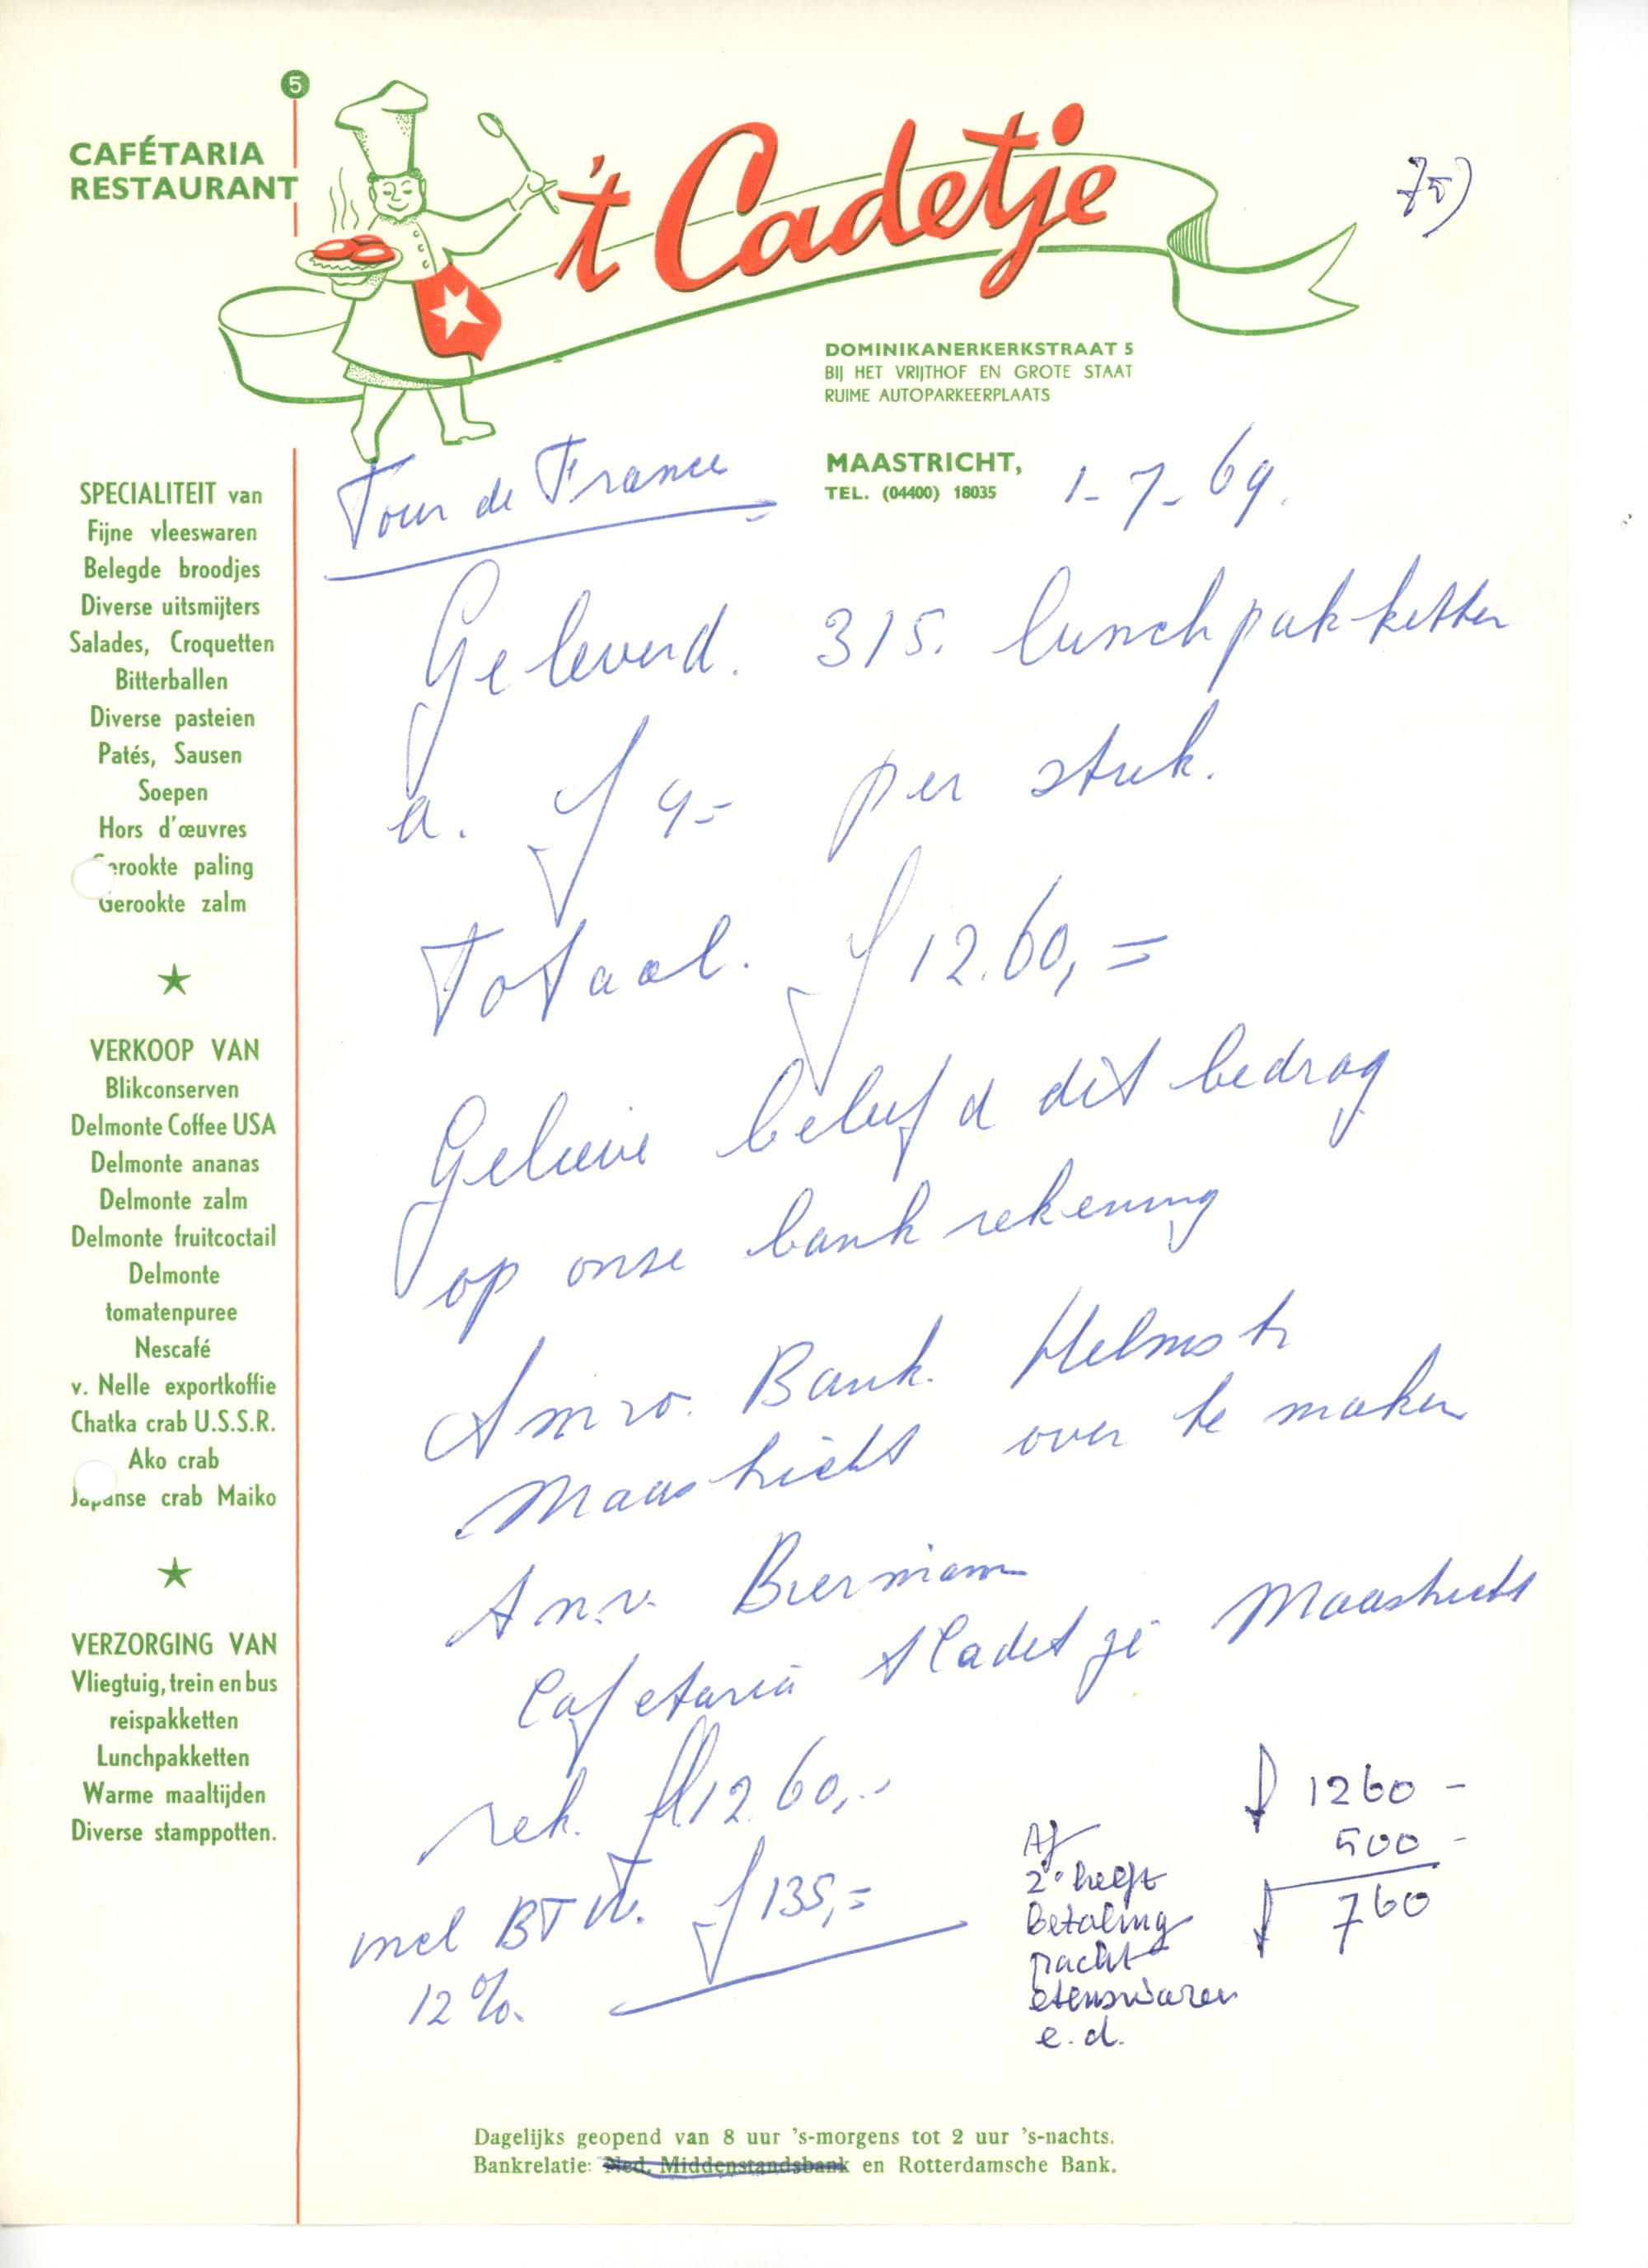 5
CAFÉTARIA
RESTAURANT
't Cadetje
75)
DOMINIKANERKERKSTRAAT 5
BIJ HET VRIJTHOF EN GROTE STAAT
RUIME AUTOPARKEERPLAATS
MAASTRICHT, 1-7-69.
TEL. (04400) 18035
SPECIALITEIT van
Fijne vleeswaren
Belegde broodjes
Diverse uitsmijters
Salades, Croquetten
Bitterballen
Diverse pasteien
Patés, Sausen
Soepen
Hors d'œuvres
Gerookte paling
Gerookte zalm
VERKOOP VAN
Blikconserven
Delmonte Coffee USA
Delmonte ananas
Delmonte zalm
Delmonte fruitcoctail
Delmonte
tomatenpuree
Nescafé
v. Nelle exportkoffie
Chatka crab U.S.S.R.
Ako crab
Japanse crab Maiko
VERZORGING VAN
Vliegtuig, trein en bus
reispakketten
Lunchpakketten
Warme maaltijden
Diverse stamppotten.
Tour de France
Geleverd. 315. lunchpakketten
a. f 4,= per stuk.
Totaal. f 12.60,=
Gelieve beleefd dit bedrag
op onse bank rekening
Amro. Bank. Helmstr
Maastricht over te maken
A.n.v. Biermann
Cafetaria t Cadetje Maastricht
rek. fl 12.60,-
incl BTW. f 135,=
12%.
f 1260 -
500 -
f 760
Af
2e helft
betaling
nacht
etenswaren
e.d.
Dagelijks geopend van 8 uur 's-morgens tot 2 uur 's-nachts.
Bankrelatie: Ned. Middenstandsbank en Rotterdamsche Bank.